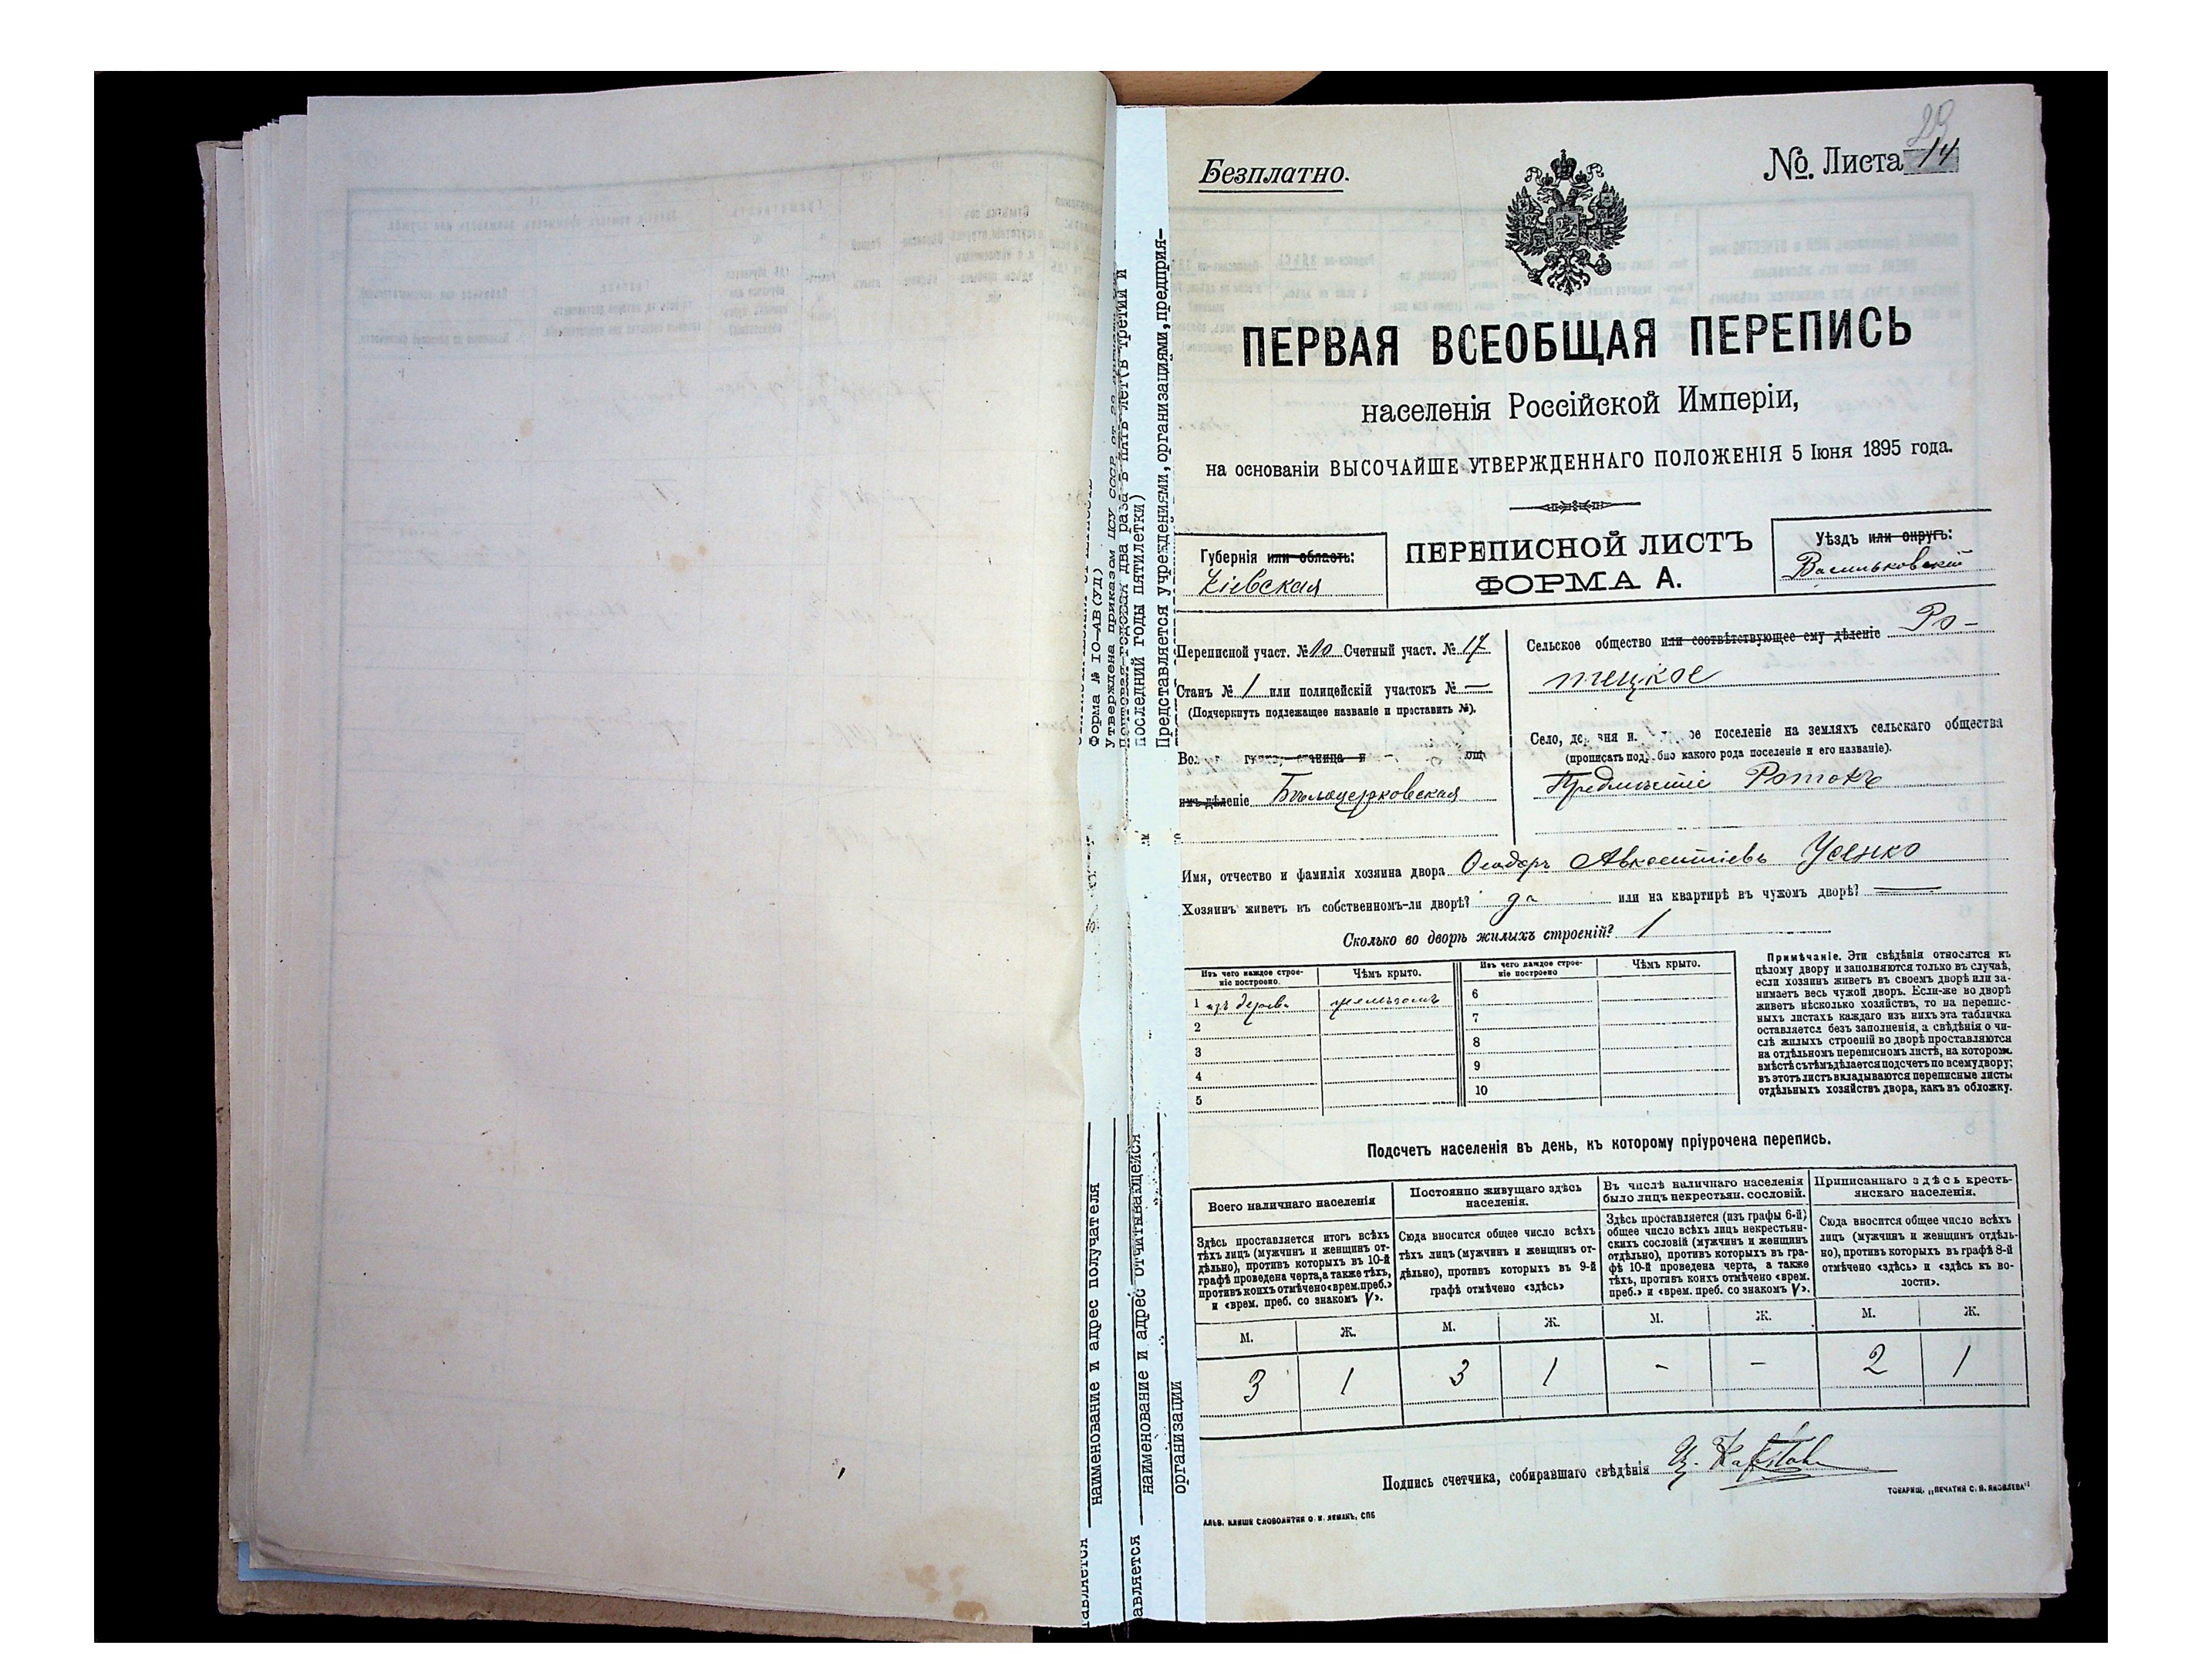 29
Безплатно.
№ Листа 14
ПЕРВАЯ ВСЕОБЩАЯ ПЕРЕПИСЬ
населенія Россійской Имперіи,
на основаніи ВЫСОЧАЙШЕ УТВЕРЖДЕННАГО ПОЛОЖЕНІЯ 5 Іюня 1895 года.
Губернія или область:
Кіевская
ПЕРЕПИСНОЙ ЛИСТЪ
ФОРМА А.
Уѣздъ или округъ:
Васильковскій
Переписной участ. № 10 Счетный участ. № 17
Станъ № 1 или полицейскій участокъ № —
(Подчеркнуть подлежащее названіе и проставить №).
деленіе Бѣлоцерковская
Сельское общество или соотвѣтствующее ему дѣленіе Ро-
тецкое
Село, поселеніе на земляхъ сельскаго общества
(прописать подробно какого рода поселеніе и его названіе).
Предмѣстіе Ротокъ
Имя, отчество и фамилія хозяина двора Ѳеодоръ Авксентіевъ Усенко
Хозяинъ живетъ въ собственномъ-ли дворѣ? да или на квартирѣ въ чужомъ дворѣ? —
Сколько во дворѣ жилыхъ строеній? 1
Изъ чего каждое строе-
ніе построено.
Чѣмъ крыто.
Изъ чего каждое строе-
ніе построено
Чѣмъ крыто.
1 изъ дерева желѣзомъ
2
3
4
5
6
7
8
9
10
Примѣчаніе. Эти свѣдѣнія относятся къ
цѣлому двору и заполняются только въ случаѣ,
если хозяинъ живетъ въ своемъ дворѣ или за-
нимаетъ весь чужой дворъ. Если-же во дворѣ
живетъ нѣсколько хозяйствъ, то на перепис-
ныхъ листахъ каждаго изъ нихъ эта табличка
оставляется безъ заполненія, а свѣдѣнія о чи-
слѣ жилыхъ строеній во дворѣ проставляются
на отдѣльномъ переписномъ листѣ, на которомъ
вмѣстѣ съ тѣмъ дѣлается подсчетъ по всему двору;
въ этотъ листъ вкладываются переписные листы
отдѣльныхъ хозяйствъ двора, какъ въ обложку.
Подсчетъ населенія въ день, къ которому пріурочена перепись.
Всего наличнаго населенія
Здѣсь проставляется итогъ всѣхъ
тѣхъ лицъ (мужчинъ и женщинъ от-
дѣльно), противъ которыхъ въ 10-й
графѣ проведена черта, а также тѣхъ,
противъ коихъ отмѣчено «врем. преб.»
и «врем. преб. со знакомъ V».
Постоянно живущаго здѣсь
населенія.
Сюда вносится общее число всѣхъ
тѣхъ лицъ (мужчинъ и женщинъ от-
дѣльно), противъ которыхъ въ 9-й
графѣ отмѣчено «здѣсь»
Въ числѣ наличнаго населенія
было лицъ некрестьян. сословій.
Здѣсь проставляется (изъ графы 6-й)
общее число всѣхъ лицъ некрестьян-
скихъ сословій (мужчинъ и женщинъ
отдѣльно), противъ которыхъ въ гра-
фѣ 10-й проведена черта, а также
тѣхъ, противъ коихъ отмѣчено «врем.
преб.» и «врем. преб. со знакомъ V».
Приписаннаго здѣсь кресть-
янскаго населенія.
Сюда вносится общее число всѣхъ
лицъ (мужчинъ и женщинъ отдѣль-
но), противъ которыхъ въ графѣ 8-й
отмѣчено «здѣсь» и «здѣсь къ во-
лости».
М. Ж. М. Ж. М. Ж. М. Ж.
3 1 3 1 - - 2 1
Подпись счетчика, собиравшаго свѣдѣнія
ТОВАРИЩ. „ПЕЧАТНЯ С. П. ЯКОВЛЕВА"
КЛИШЕ СЛОВОЛИТНИ О. И. ЛЕМАНЪ, СПБ
Форма № 10-АВ(УД)
Утверждена приказом ЦСУ СССР от
Почтовая-годовая два раза в пять лет(в третий и
последний годы пятилетки)
Представляется учреждениями, организациями, предприя-
наименование и адрес получателя
наименование и адрес отчитывающейся
организации